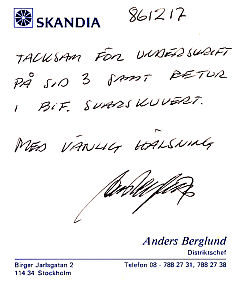 SKANDIA
861217
TACKSAM FÖR UNDERSKRIFT
PÅ SID 3 SAMT RETUR
I BIF. SVARSKUVERT.
MED VÄNLIG HÄLSNING
Anders Berglund
Distriktschef
Birger Jarlsgatan 2
114 34 Stockholm
Telefon 08 - 788 27 31, 788 27 38